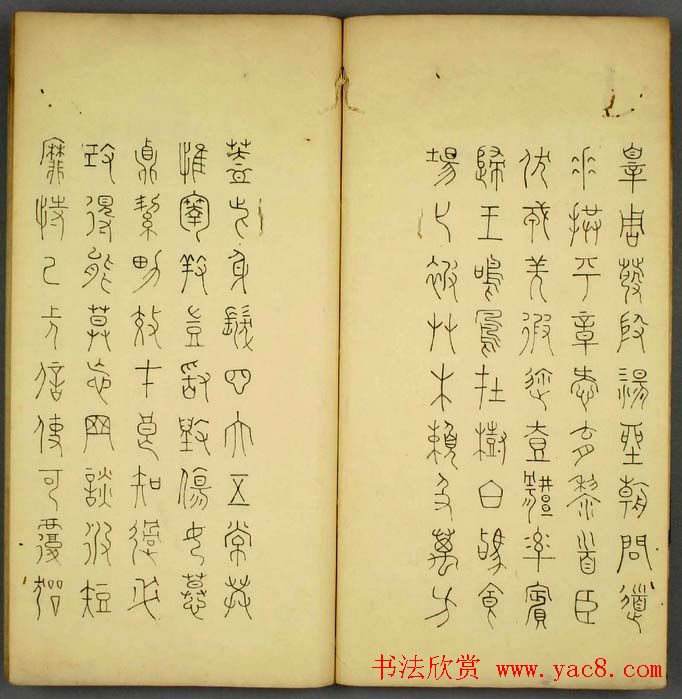 辠周發殷湯坐朝問道
垂拱平章愛育黎首臣
伏戎羌遐邇壹體率賓
歸王鳴鳳在樹白駒食
場化被艸木賴及萬方
蓋此身髮四大五常恭
惟鞠養豈敢毀傷女慕
貞絜男效才良知過必
改得能莫忘罔談彼短
靡恃己長信使可覆器
书法欣赏 www.yac8.com